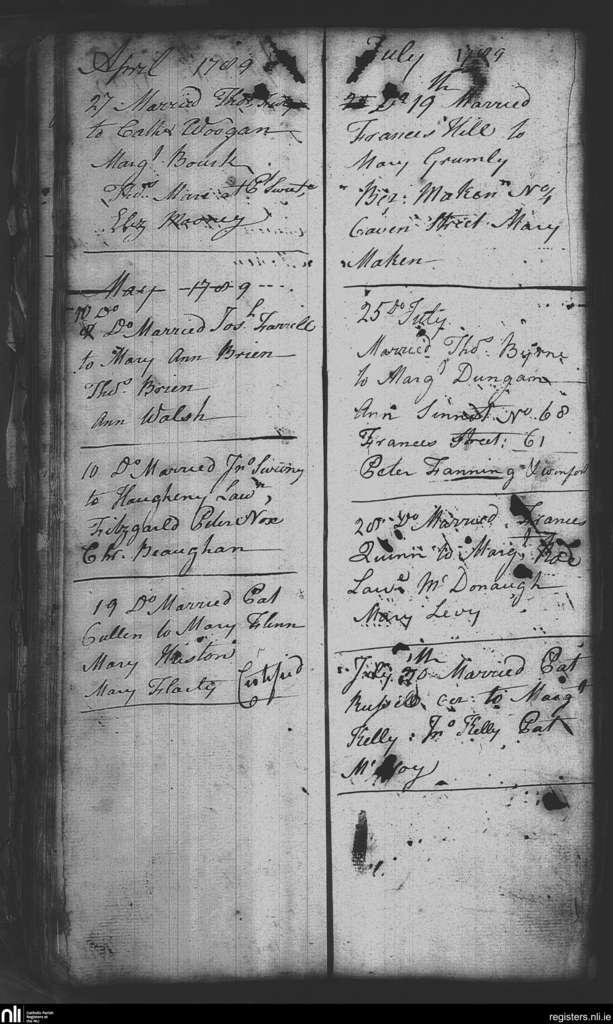 April 1789
27 Married Thos.
to Cathe Woogan
Margt Bourk
Thos. Mare at
Eliz Mooney
May 1789
10 Do
Do Married Josh. Farrell
to Mary Ann Brien
Thos. Brien
Ann Walsh
10 Do Married Jno Swiny
to Haugheny Lawn,
Fitzgarld Peter Noxe
Chr. Beaughan
19 Do Married Pat
Cullen to Mary Flinn
Mary Huston
Mary Flarty Certified
July 1789
19th Married
Frances Hill to
Mary Grumly
Ber: Maken No 4
Caven Street Mary
Maken
25 Do July
Married Thos. Byrne
to Margt Dungan
Ann Sinnott No. 68
Frances Street: 61
Peter Fanning
28 Do Married Frances
Quinn to Margt Roe
Lawe Mc Donaugh
Mary Levy
July 30th Married Pat
Russell to Margt
Kelly: Jno Kelly Pat
Mc
nli
Catholic Parish
Registers at
the NLI
registers.nli.ie